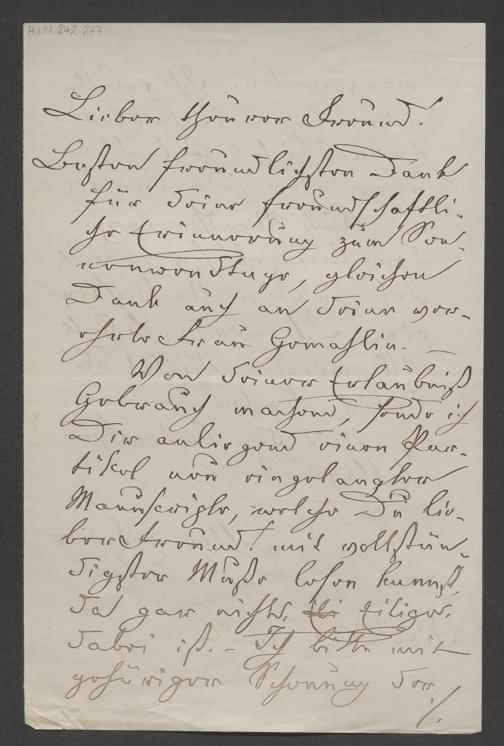 H.I.N. 242.277
Lieber theurer Freund!
Besten freundlichsten Dank
für Deine freundschaftli-
che Erinnerung zum Son-
nenwendtage, gleichen
Dank auch an Deine ver-
ehrte Frau Gemahlin. —
Von Deiner Erlaubniß
Gebrauch machend, sende ich
Dir anliegend einen Par-
tikel neu eingelangter
Manuscripte, welche Du lie-
ber Freund! mit vollstän-
digster Muße lesen kannst,
da gar nichts, Eiliges
dabei ist. – Ich bitte mit
gehöriger Schonung der
./.